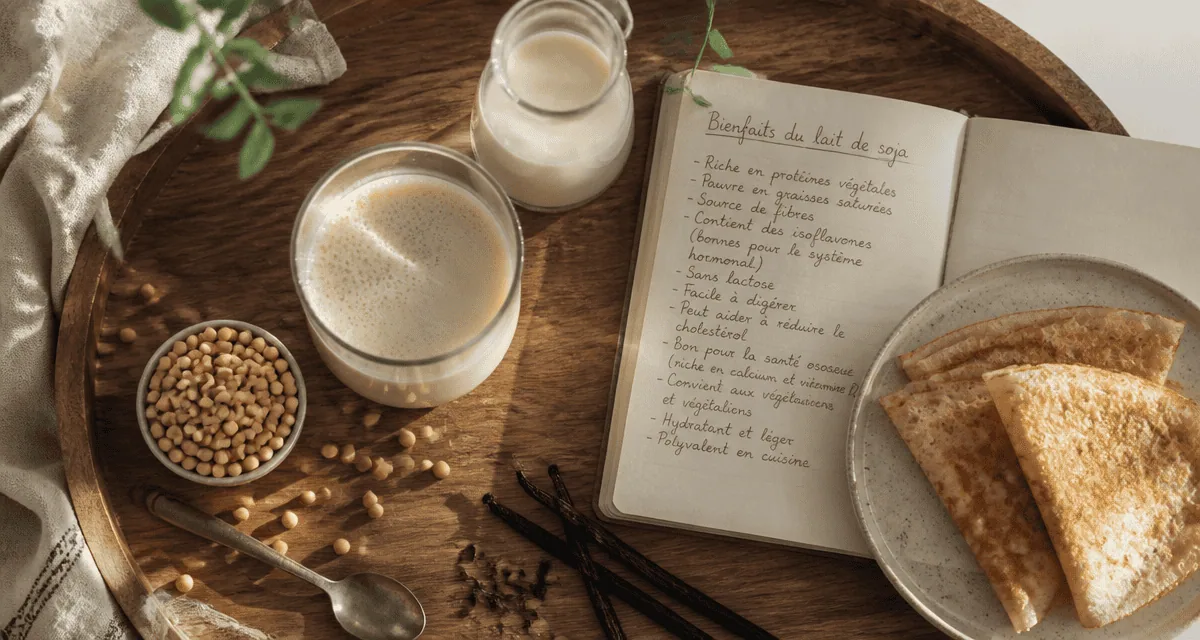 Bienfaits du lait de soja
- Riche en protéines végétales
- Pauvre en graisses saturées
- Source de fibres
- Contient des isoflavones
(bonnes pour le système
hormonal.)
- Sans lactose
- Facile à digérer
- Peut aider à réduire le
cholestérol
- Bon pour la santé
(riche en calcium et vitamine D
- Convient aux
et végétaliens
- Hydratant et léger
- Polyvalent en cuisine